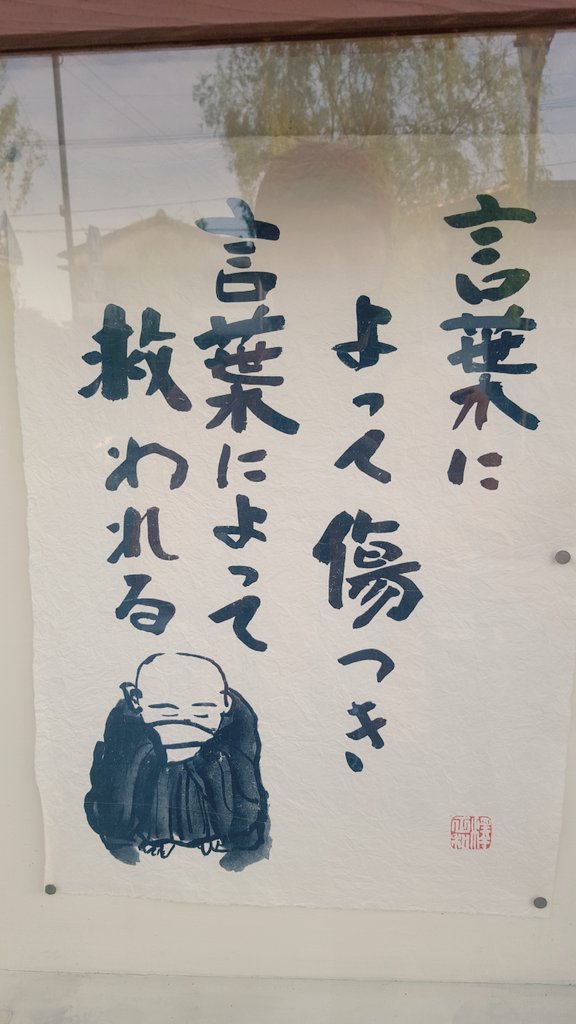 言葉に
よって傷つき
言葉によって
救われる